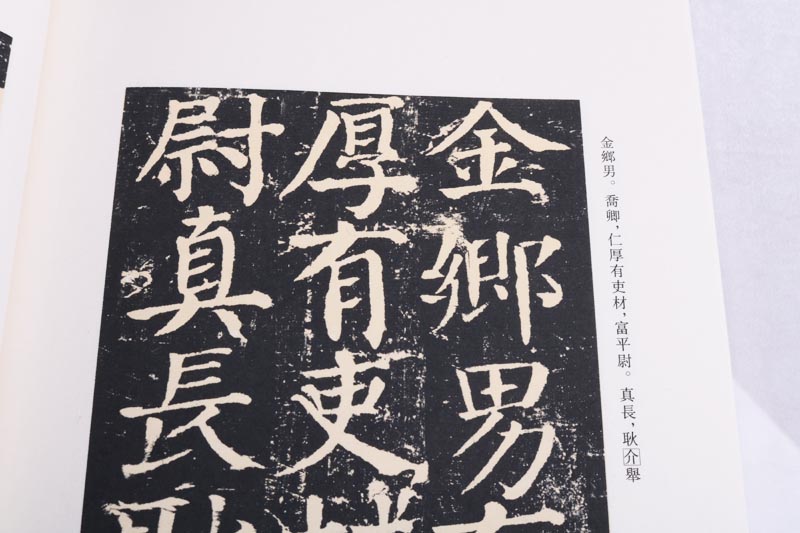 金鄉男
厚有吏材
尉真長耿
金鄉男。喬卿，仁厚有吏材，富平尉。真長，耿介舉